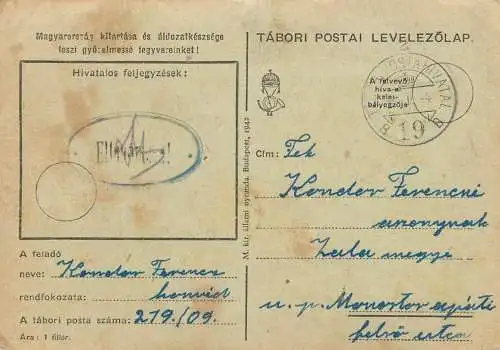 Magyarország kitartása és áldozatkészsége
teszi győzelmessé fegyvereinket!
Hivatalos feljegyzések:
A feladó
neve: Kondor Ferencz
rendfokozata: honvéd
A tábori posta száma: 219./09.
Ára: 1 fillér.
M. kir. állami nyomda. Budapest, 1942
TÁBORI POSTAI LEVELEZŐLAP.
A felvevő
hiva-al
kelet-
bélyegzője
19
Cím: Kondor Ferencné
asszonynak
Zala megye
u. p. Monostorapáti
felső utca